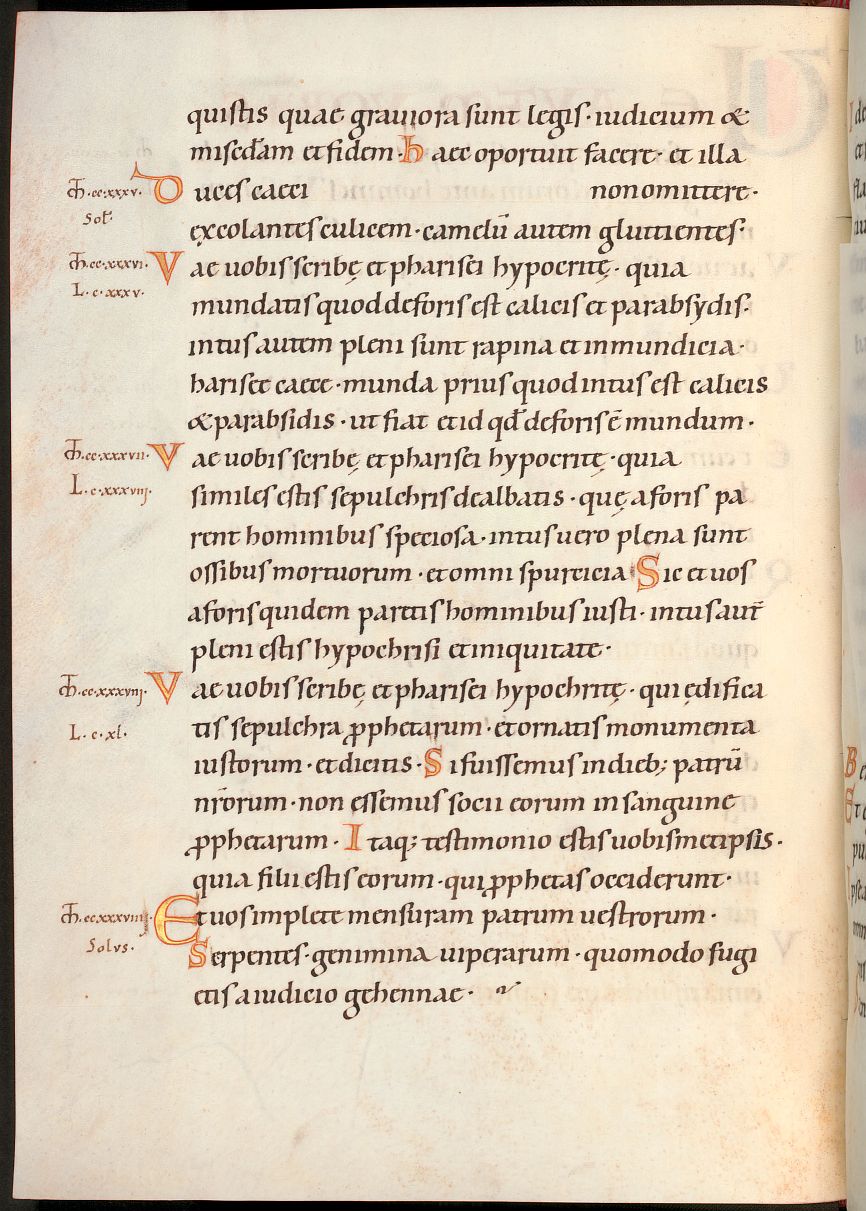 quistis quae grauiora sunt legis · iudicium &
miscd̄am et fidem · haec oportuit facere · et illa
M̄t · cc · xxxv · Duces caeci non omittere ·
Sol̄ excolantes culicem · camelū autem glutientes ·
M̄t · cc · xxxvi · Vae uobis scribę et pharisei hypocritę · quia
L · c · xxxv · mundatis quod deforis est calicis et parabsydis ·
intus autem pleni sunt rapina et inmundicia ·
harisee caece · munda prius quod intus est calicis
& parabsidis · ut fiat et id qd̄ deforis ē mundum ·
M̄t · cc · xxxvii · Vae uobis scribę et pharisei hypocritę · quia
L · c · xxxviij · similes estis sepulchris dealbatis · quę a foris pa
rent hominibus speciosa · intus uero plena sunt
ossibus mortuorum · et omni spurcicia · Sic et uos
a foris quidem paretis hominibus iusti · intus aut̄
pleni estis hypochrisi et iniquitate ·
M̄t · cc · xxxviij · Vae uobis scribę et pharisei hypochritę · qui ędifica
L · c · xl · tis sepulchra ꝓphetarum · et ornatis monumenta
iustorum · et dicitis · Si fuissemus in dieb; patrū
nr̄orum · non essemus socii eorum in sanguine
ꝓphetarum · Itaq; testimonio estis uobismetipsis ·
quia filii estis eorum · qui ꝓphetas occiderunt ·
M̄t · cc · xxxviiij · Et uos implete mensuram patrum uestrorum ·
Solus · Serpentes · genimina uiperarum · quomodo fugi
etis a iudicio gehennae ·